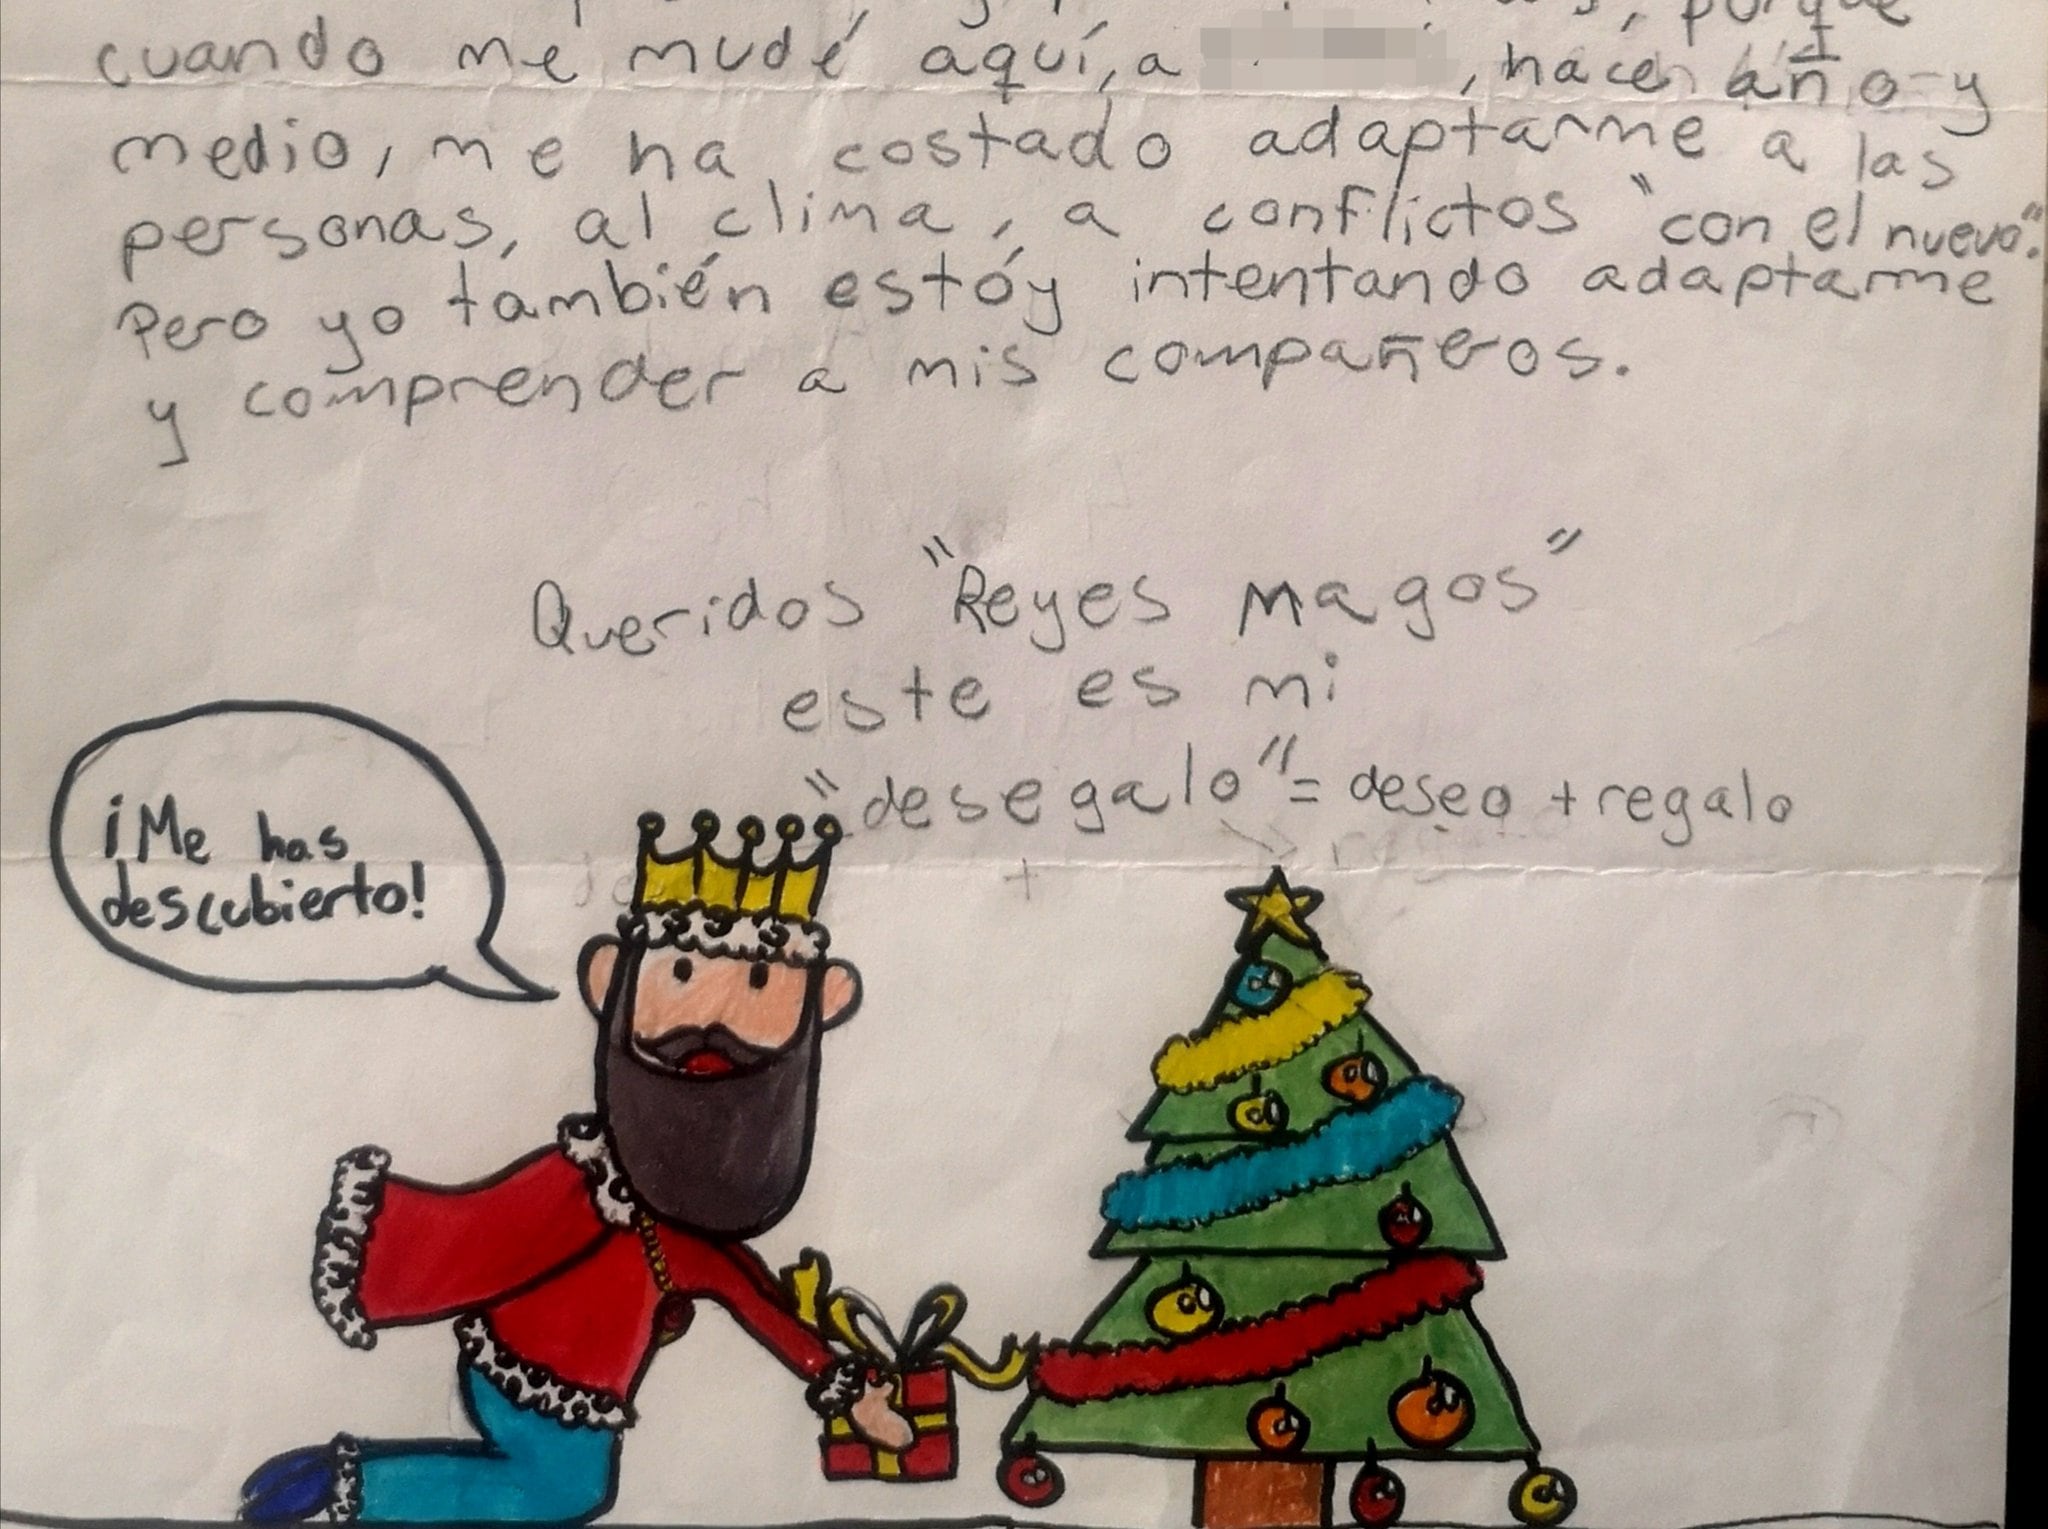 porque
cuando me mudé aquí, a , hacen año y
medio, me ha costado adaptarme a las
personas, al clima, a conflictos "con el nuevo".
Pero yo también estóy intentando adaptarme
y comprender a mis compañeros.
Queridos "Reyes Magos"
este es mi
"desegalo" = deseo + regalo
¡Me has
descubierto!